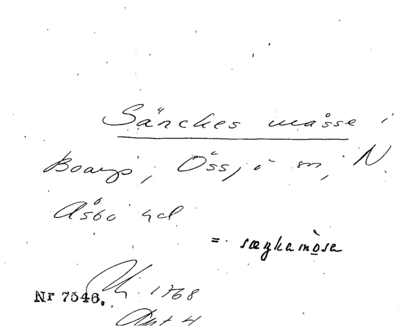 Särckes måsse i
Boarp, Össjö sn, N.
Åsbo hd
= særkamòsa
Nr 7546. 1768
Akt 4